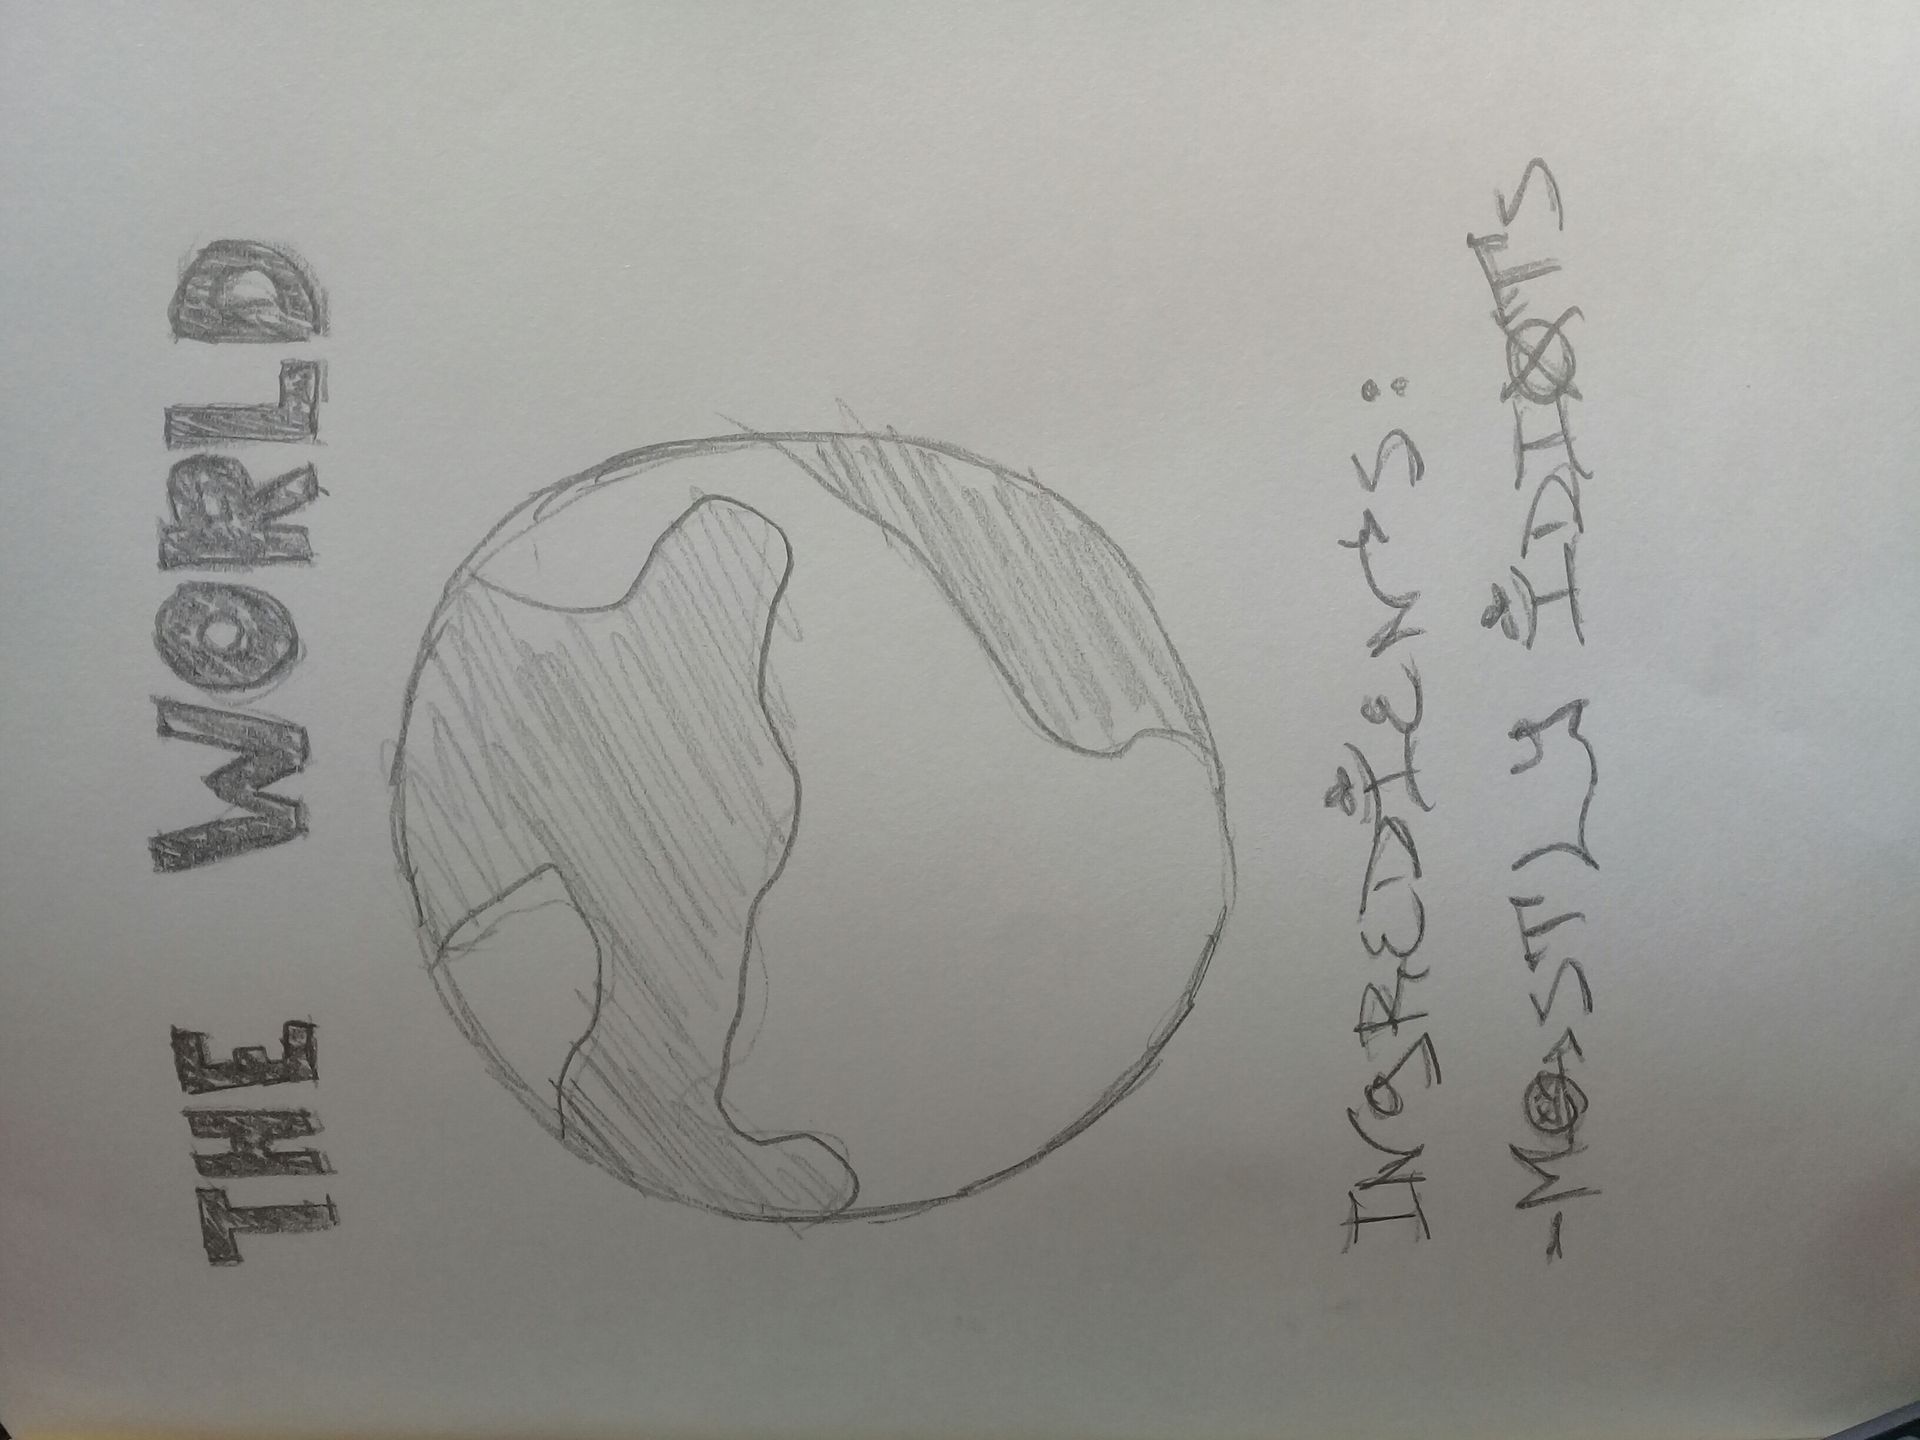 THE WORLD
INGREDIENTS:
-MOSTLY IDIOTS